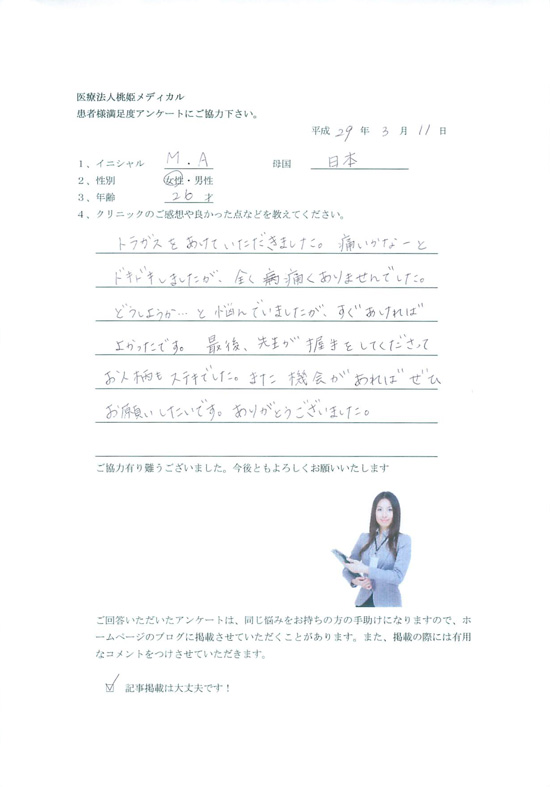 医療法人桃姫メディカル
患者様満足度アンケートにご協力下さい。
平成 29 年 3 月 11 日
1、イニシャル M.A 母国 日本
2、性別 女性・男性
3、年齢 26 才
4、クリニックのご感想や良かった点などを教えてください。
トラガスをあけていただきました。痛いかなーと
ドキドキしましたが、全く痛くありませんでした。
どうしようか…と悩んでいましたが、すぐあければ
よかったです。最後、先生が握手をしてくださって
お人柄もステキでした。また機会があればぜひ
お願いしたいです。ありがとうございました。
ご協力有り難うございました。今後ともよろしくお願いいたします
ご回答いただいたアンケートは、同じ悩みをお持ちの方の手助けになりますので、ホ
ームページのブログに掲載させていただくことがあります。また、掲載の際には有用
なコメントをつけさせていただきます。
☑ 記事掲載は大丈夫です！